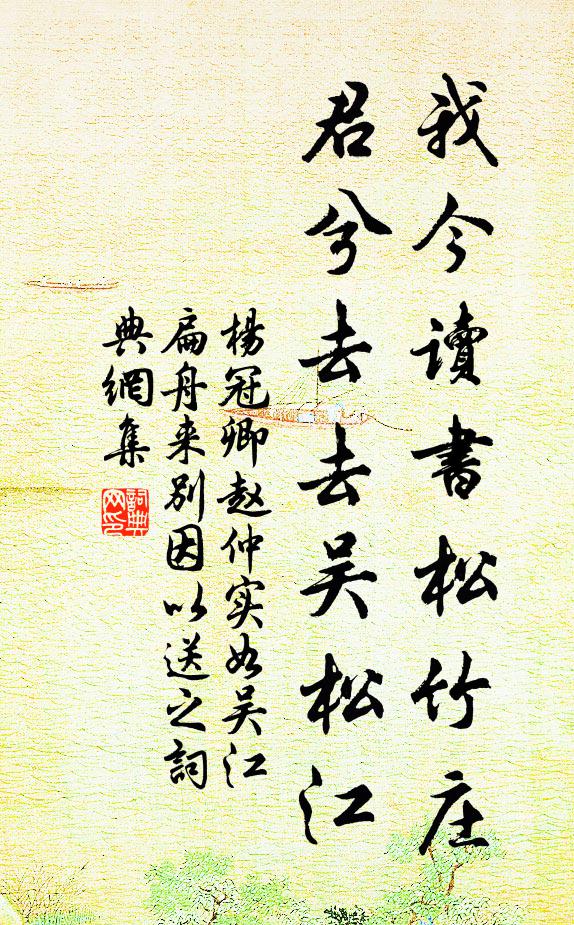 我今读書松竹庄
君兮去去吴松江
楊冠卿赵仲实如吴江
扁舟来别因以送之詞
典網集
詞典
网印